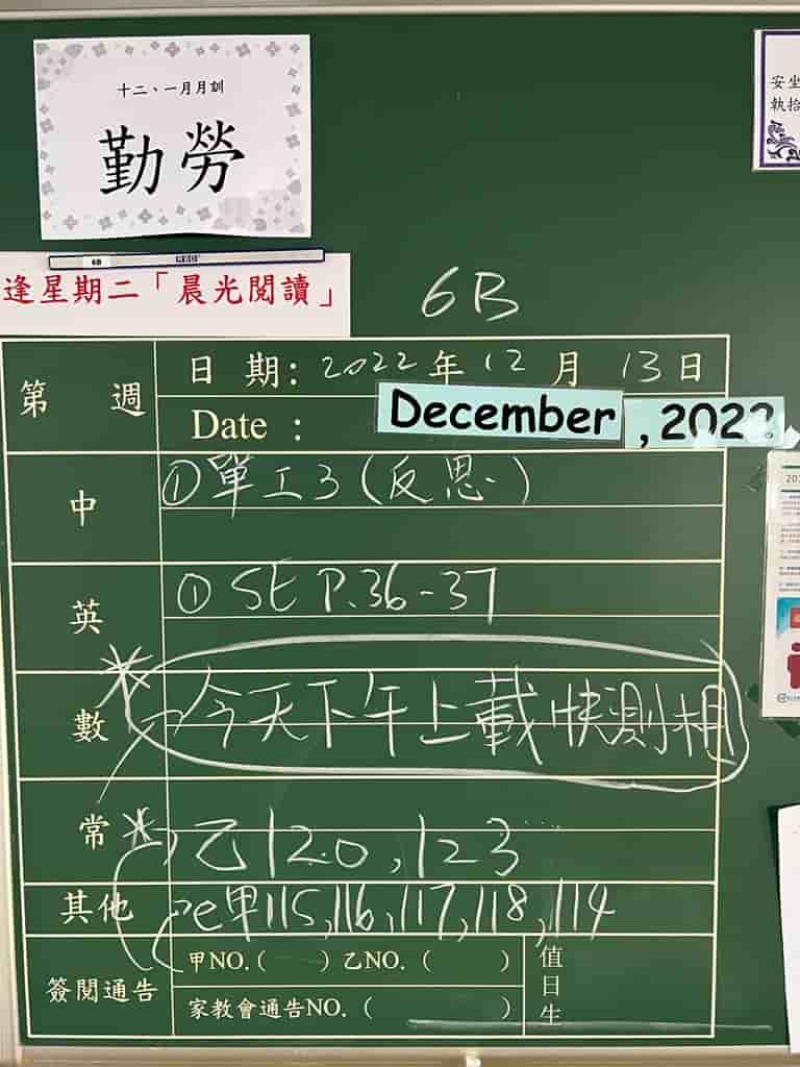 十二、一月月訓
勤勞
安坐
執拾
逢星期二「晨光閱讀」
6B
第 週
日 期: 2022 年 12 月 13 日
Date : December , 2022
中
①單工3(反思)
英
① SE P.36-37
數
今天下午上載快測相
常
乙120,123
其他
e甲115,116,117,118,114
簽閱通告
甲NO.( ) 乙NO. ( )
家教會通告NO. ( )
值日生